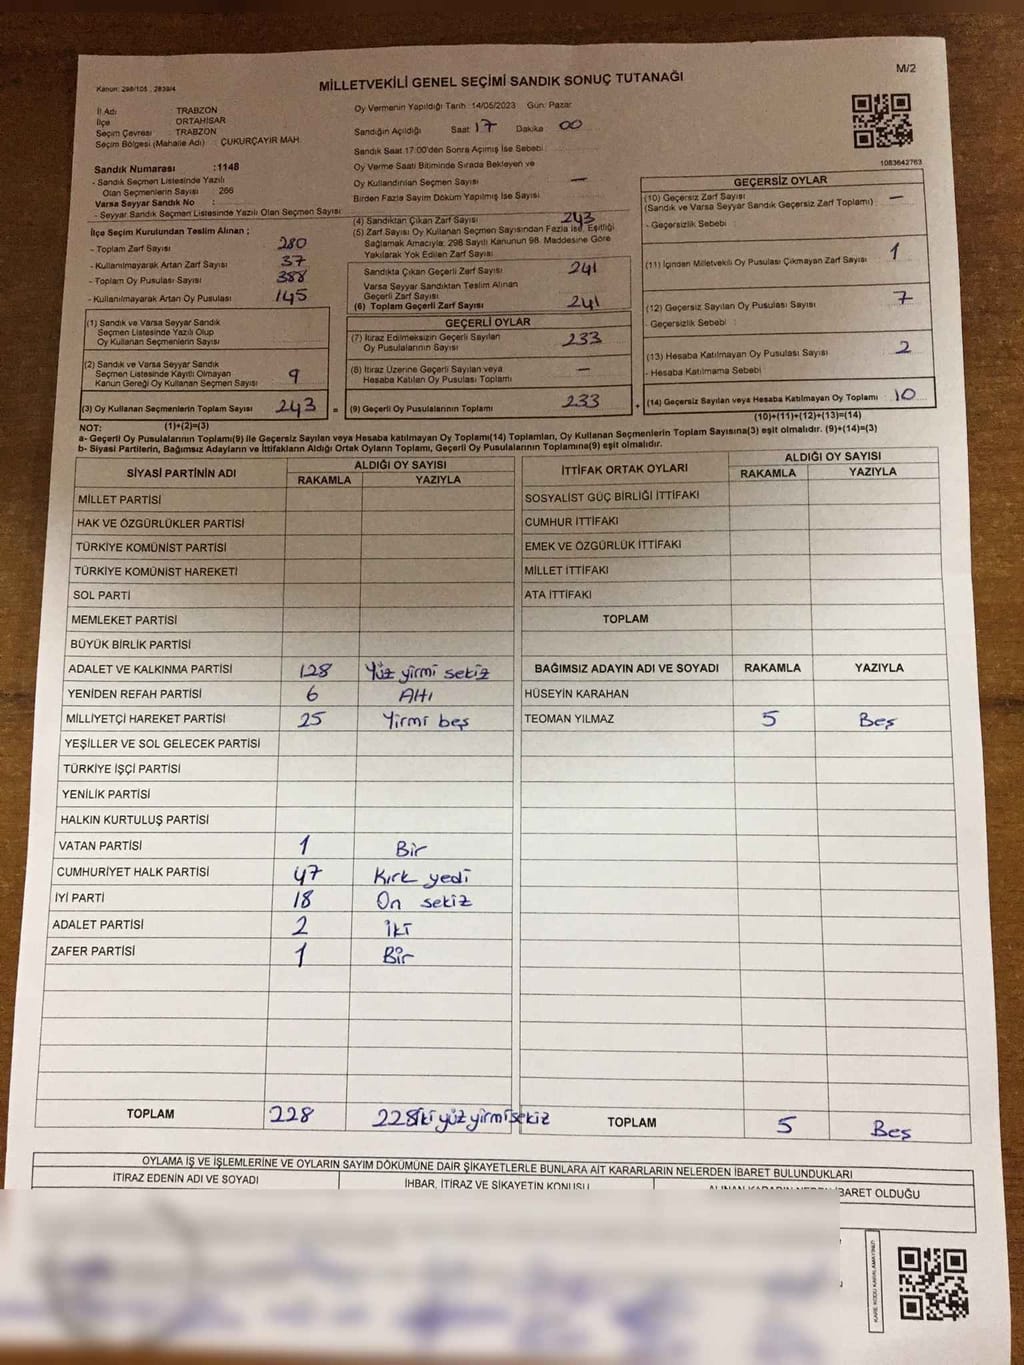 M/2
Kanun: 298/105 , 2839/4
MİLLETVEKİLİ GENEL SEÇİMİ SANDIK SONUÇ TUTANAĞI
İl Adı : TRABZON
İlçe : ORTAHİSAR
Seçim Çevresi : TRABZON
Seçim Bölgesi (Mahalle Adı) : ÇUKURÇAYIR MAH.
Sandık Numarası :1148
- Sandık Seçmen Listesinde Yazılı
Olan Seçmenlerin Sayısı : 266
Varsa Seyyar Sandık No :
- Seyyar Sandık Seçmen Listesinde Yazılı Olan Seçmen Sayısı:
İlçe Seçim Kurulundan Teslim Alınan ;
- Toplam Zarf Sayısı : 280
- Kullanılmayarak Artan Zarf Sayısı : 37
- Toplam Oy Pusulası Sayısı : 388
- Kullanılmayarak Artan Oy Pusulası : 145
(1) Sandık ve Varsa Seyyar Sandık
Seçmen Listesinde Yazılı Olup
Oy Kullanan Seçmenlerin Sayısı :
(2) Sandık ve Varsa Seyyar Sandık
Seçmen Listesinde Kayıtlı Olmayan
Kanun Gereği Oy Kullanan Seçmen Sayısı : 9
(3) Oy Kullanan Seçmenlerin Toplam Sayısı : 243
(1)+(2)=(3)
Oy Vermenin Yapıldığı Tarih :14/05/2023 Gün: Pazar
Sandığın Açıldığı Saat :17 Dakika :00
Sandık Saat 17:00'den Sonra Açımış İse Sebebi :
Oy Verme Saati Bitiminde Sırada Bekleyen ve
Oy Kullandırılan Seçmen Sayısı : —
Birden Fazla Sayım Döküm Yapılmış İse Sayısı :
(4) Sandıktan Çıkan Zarf Sayısı : 243
(5) Zarf Sayısı Oy Kullanan Seçmen Sayısından Fazla İse, Eşitliği
Sağlamak Amacıyla; 298 Sayılı Kanunun 98. Maddesine Göre
Yakılarak Yok Edilen Zarf Sayısı :
Sandıkta Çıkan Geçerli Zarf Sayısı : 241
Varsa Seyyar Sandıktan Teslim Alınan
Geçerli Zarf Sayısı :
(6) Toplam Geçerli Zarf Sayısı : 241
GEÇERLİ OYLAR
(7) İtiraz Edilmeksizin Geçerli Sayılan
Oy Pusulalarının Sayısı : 233
(8) İtiraz Üzerine Geçerli Sayılan veya
Hesaba Katılan Oy Pusulası Toplamı : —
= (9) Geçerli Oy Pusulalarının Toplamı : 233
1083642763
GEÇERSİZ OYLAR
(10) Geçersiz Zarf Sayısı : —
(Sandık ve Varsa Seyyar Sandık Geçersiz Zarf Toplamı)
- Geçersizlik Sebebi :
(11) İçinden Milletvekili Oy Pusulası Çıkmayan Zarf Sayısı : 1
(12) Geçersiz Sayılan Oy Pusulası Sayısı : 7
- Geçersizlik Sebebi :
(13) Hesaba Katılmayan Oy Pusulası Sayısı : 2
- Hesaba Katılmama Sebebi :
+ (14) Geçersiz Sayılan veya Hesaba Katılmayan Oy Toplamı : 10
(10)+(11)+(12)+(13)=(14)
NOT:
a- Geçerli Oy Pusulalarının Toplamı(9) ile Geçersiz Sayılan veya Hesaba katılmayan Oy Toplamı(14) Toplamları, Oy Kullanan Seçmenlerin Toplam Sayısına(3) eşit olmalıdır. (9)+(14)=(3)
b- Siyasi Partilerin, Bağımsız Adayların ve İttifakların Aldığı Ortak Oyların Toplamı, Geçerli Oy Pusulalarının Toplamına(9) eşit olmalıdır.
SİYASİ PARTİNİN ADI ALDIĞI OY SAYISI
RAKAMLA YAZIYLA
MİLLET PARTİSİ
HAK VE ÖZGÜRLÜKLER PARTİSİ
TÜRKİYE KOMÜNİST PARTİSİ
TÜRKİYE KOMÜNİST HAREKETİ
SOL PARTİ
MEMLEKET PARTİSİ
BÜYÜK BİRLİK PARTİSİ
ADALET VE KALKINMA PARTİSİ 128 Yüz yirmi sekiz
YENİDEN REFAH PARTİSİ 6 Altı
MİLLİYETÇİ HAREKET PARTİSİ 25 Yirmi beş
YEŞİLLER VE SOL GELECEK PARTİSİ
TÜRKİYE İŞÇİ PARTİSİ
YENİLİK PARTİSİ
HALKIN KURTULUŞ PARTİSİ
VATAN PARTİSİ 1 Bir
CUMHURİYET HALK PARTİSİ 47 Kırk yedi
İYİ PARTİ 18 On sekiz
ADALET PARTİSİ 2 İki
ZAFER PARTİSİ 1 Bir
TOPLAM 228 228iki yüz yirmi sekiz
İTTİFAK ORTAK OYLARI ALDIĞI OY SAYISI
RAKAMLA YAZIYLA
SOSYALİST GÜÇ BİRLİĞİ İTTİFAKI
CUMHUR İTTİFAKI
EMEK VE ÖZGÜRLÜK İTTİFAKI
MİLLET İTTİFAKI
ATA İTTİFAKI
TOPLAM
BAĞIMSIZ ADAYIN ADI VE SOYADI RAKAMLA YAZIYLA
HÜSEYİN KARAHAN
TEOMAN YILMAZ 5 Beş
TOPLAM 5 Beş
OYLAMA İŞ VE İŞLEMLERİNE VE OYLARIN SAYIM DÖKÜMÜNE DAİR ŞİKAYETLERLE BUNLARA AİT KARARLARIN NELERDEN İBARET BULUNDUKLARI
İTİRAZ EDENİN ADI VE SOYADI İHBAR, İTİRAZ VE ŞİKAYETİN KONUSU ALINAN KARARIN NEDEN İBARET OLDUĞU